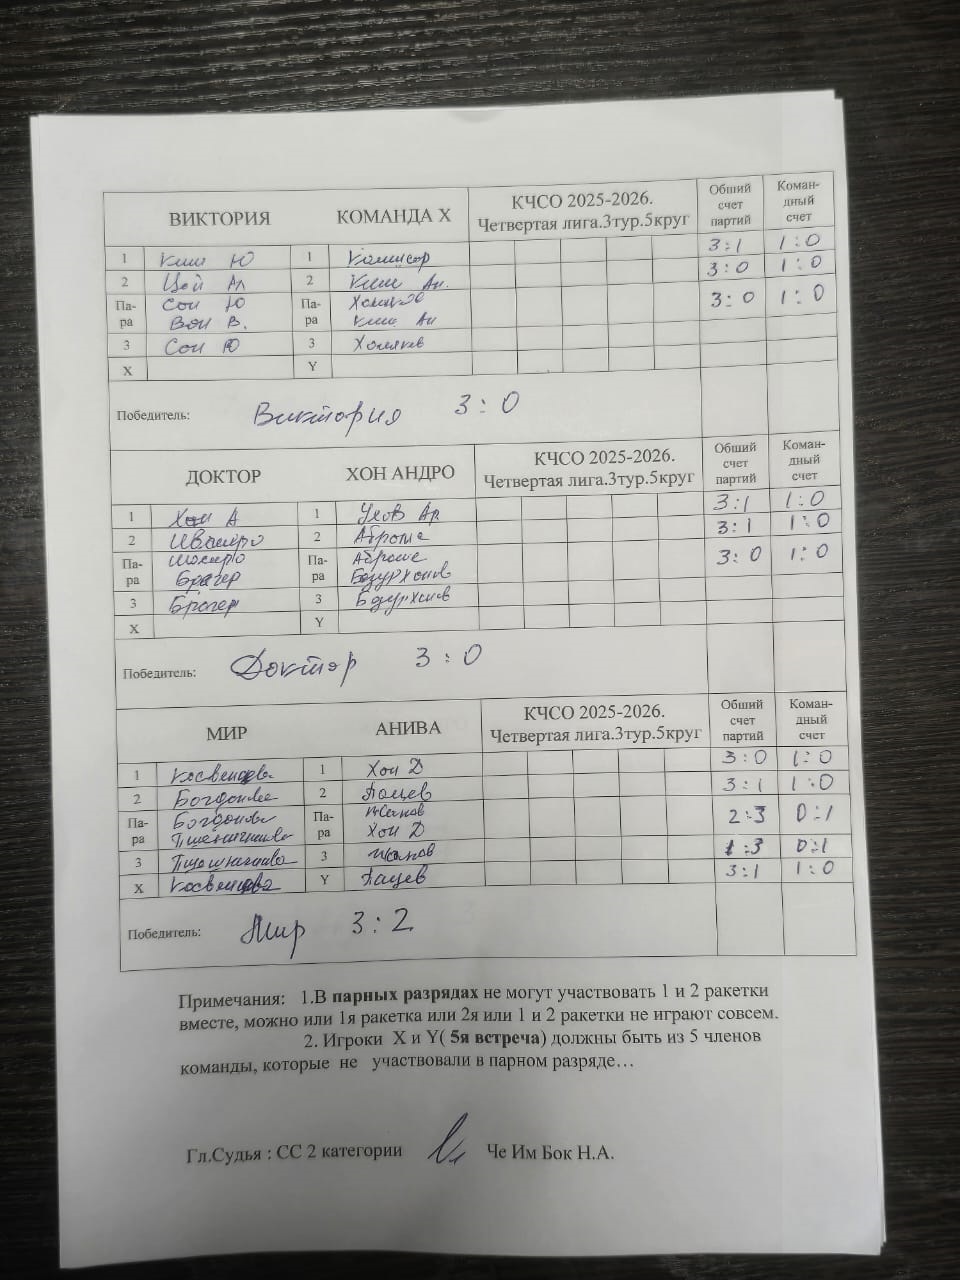 ВИКТОРИЯ КОМАНДА Х КЧСО 2025-2026. Четвертая лига.3тур.5круг Общий счет партий Коман-дный счет
1 Ким Ю 1 Комисар 3:1 1:0
2 Цой Ал 2 Ким Ан. 3:0 1:0
Па-ра Сон Ю Па-ра Хомяков 3:0 1:0
Вон В. Ким Ан
3 Сон Ю 3 Хомяков
X Y
Победитель: Виктория 3:0
ДОКТОР ХОН АНДРО КЧСО 2025-2026. Четвертая лига.3тур.5круг Общий счет партий Коман-дный счет
1 Хон А 1 Ар 3:1 1:0
2 2 3:1 1:0
Па-ра Па-ра 3:0 1:0
Брагер
3 Брагер 3
X Y
Победитель: Доктор 3:0
МИР АНИВА КЧСО 2025-2026. Четвертая лига.3тур.5круг Общий счет партий Коман-дный счет
1 1 Хон Д 3:0 1:0
2 2 3:1 1:0
Па-ра Па-ра 2:3 0:1
Хон Д
3 3 1:3 0:1
X Y 3:1 1:0
Победитель: Мир 3:2
Примечания: 1.В парных разрядах не могут участвовать 1 и 2 ракетки
вместе, можно или 1я ракетка или 2я или 1 и 2 ракетки не играют совсем.
2. Игроки X и Y( 5я встреча) должны быть из 5 членов
команды, которые не участвовали в парном разряде…
Гл.Судья : СС 2 категории Че Им Бок Н.А.